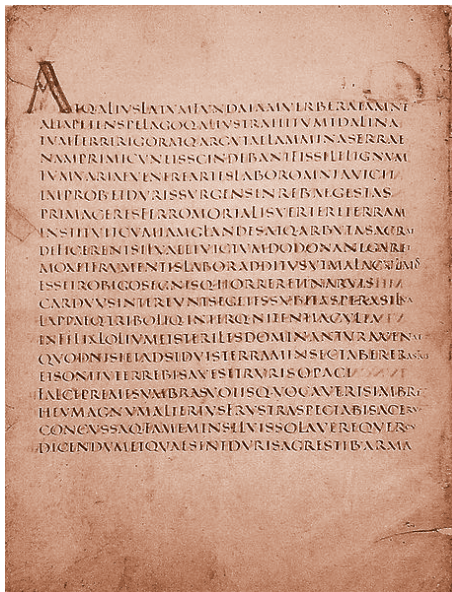 ATQALIUSLATUMFUNDAIAMVERBERATAMNE
ALTAPETENSPELAGOQALIUSTRAHITUMIDALINA
TUMFERRIRIGORATQARGUTAELAMMINASERRAE
NAMPRIMICUNEISSCINDEBANTFISSILELIGNUM
TUMVARIAEVENEREARTESLABOROMNIAVICIT
IMPROBETDURISSURGENSENREBAEGESTAS
PRIMACERESFERROMORTALISVERTERETERRAM
INSTITUITCUMIAMGLANDESATQARBUTASACRAE
DEFICERENTSILVAEETVICTUMDODONANEGARET
MOXETFRUMENTISLABORADDITUSUTMALACULMOS
ESSETROBIGOSEGNISQHORRERETINARVIS
CARDUUSINTEREUNTSEGETESSUBITASPERASILVA
LAPPAEQTRIBOLIQINTERQNITENTIACULTA
INFELIXLOLIUMETSTERILESDOMINANTURAVENAE
QUODNISIETADSIDUISTERRAMINSECTABERERAS
ETSONITUTERREBISAVESETRURISOPACI
FALCEPREMESUMBRASVOTISQVOCAVERISIMBRE
HEUMAGNUMALTERIUSFRUSTRASPECTABISACER
CONCUSSAQFAMEMINSILVISSOLAVEREQUER
DICENDUMETQUAESINTDURISAGRESTIBARMA